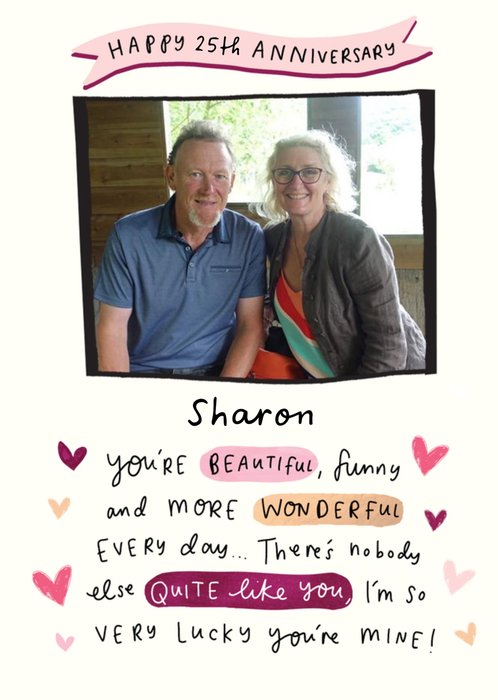 HAPPY 25th ANNIVERSARY
Sharon
YOU'RE BEAUTIFUL, funny
and MORE WONDERFUL
EVERY day... There's nobody
else QUITE like you, I'm so
VERY LUCKY you're MINE!